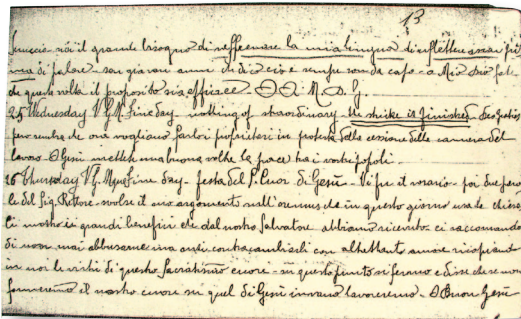 13
Semuccio - siè il grande bisogno di raffrenare la mia lingua di riflettere assai pri
ma di parlare - son già vari anni che dico ciò e sempre sono da capo - o Mio Dio fate
che questa volta il proposito sia efficace D D A M D G
25 Wednesday V G M fine day - nothing of straordinary - the strike is finished - Deo Gratias
però sembra che ora vogliono farlo i proprietari in protesta della cessione della camera del
lavoro - O Gesù mettete una buona volta la pace tra i vostri popoli -
26 Thursday V G M fine day - festa del S. Cuor di Gesù - Vi fu il rosario - poi due paro
le del Sig. Rettore - svolse il suo argomento sull'oremus che in questo giorno usa la chiesa
Ci mostrò i grandi benefizi che dal nostro Salvatore abbiamo ricevuto ci raccomandò
di non mai abbusarne ma anzi contracambiarli con altrettanto amore ricopiando
in noi le virtù di questo sacratissimo cuore - in questo punto si fermò e disse che se non
formeremo il nostro cuore su quel di Gesù invano lavoreremo - O Buon Gesù